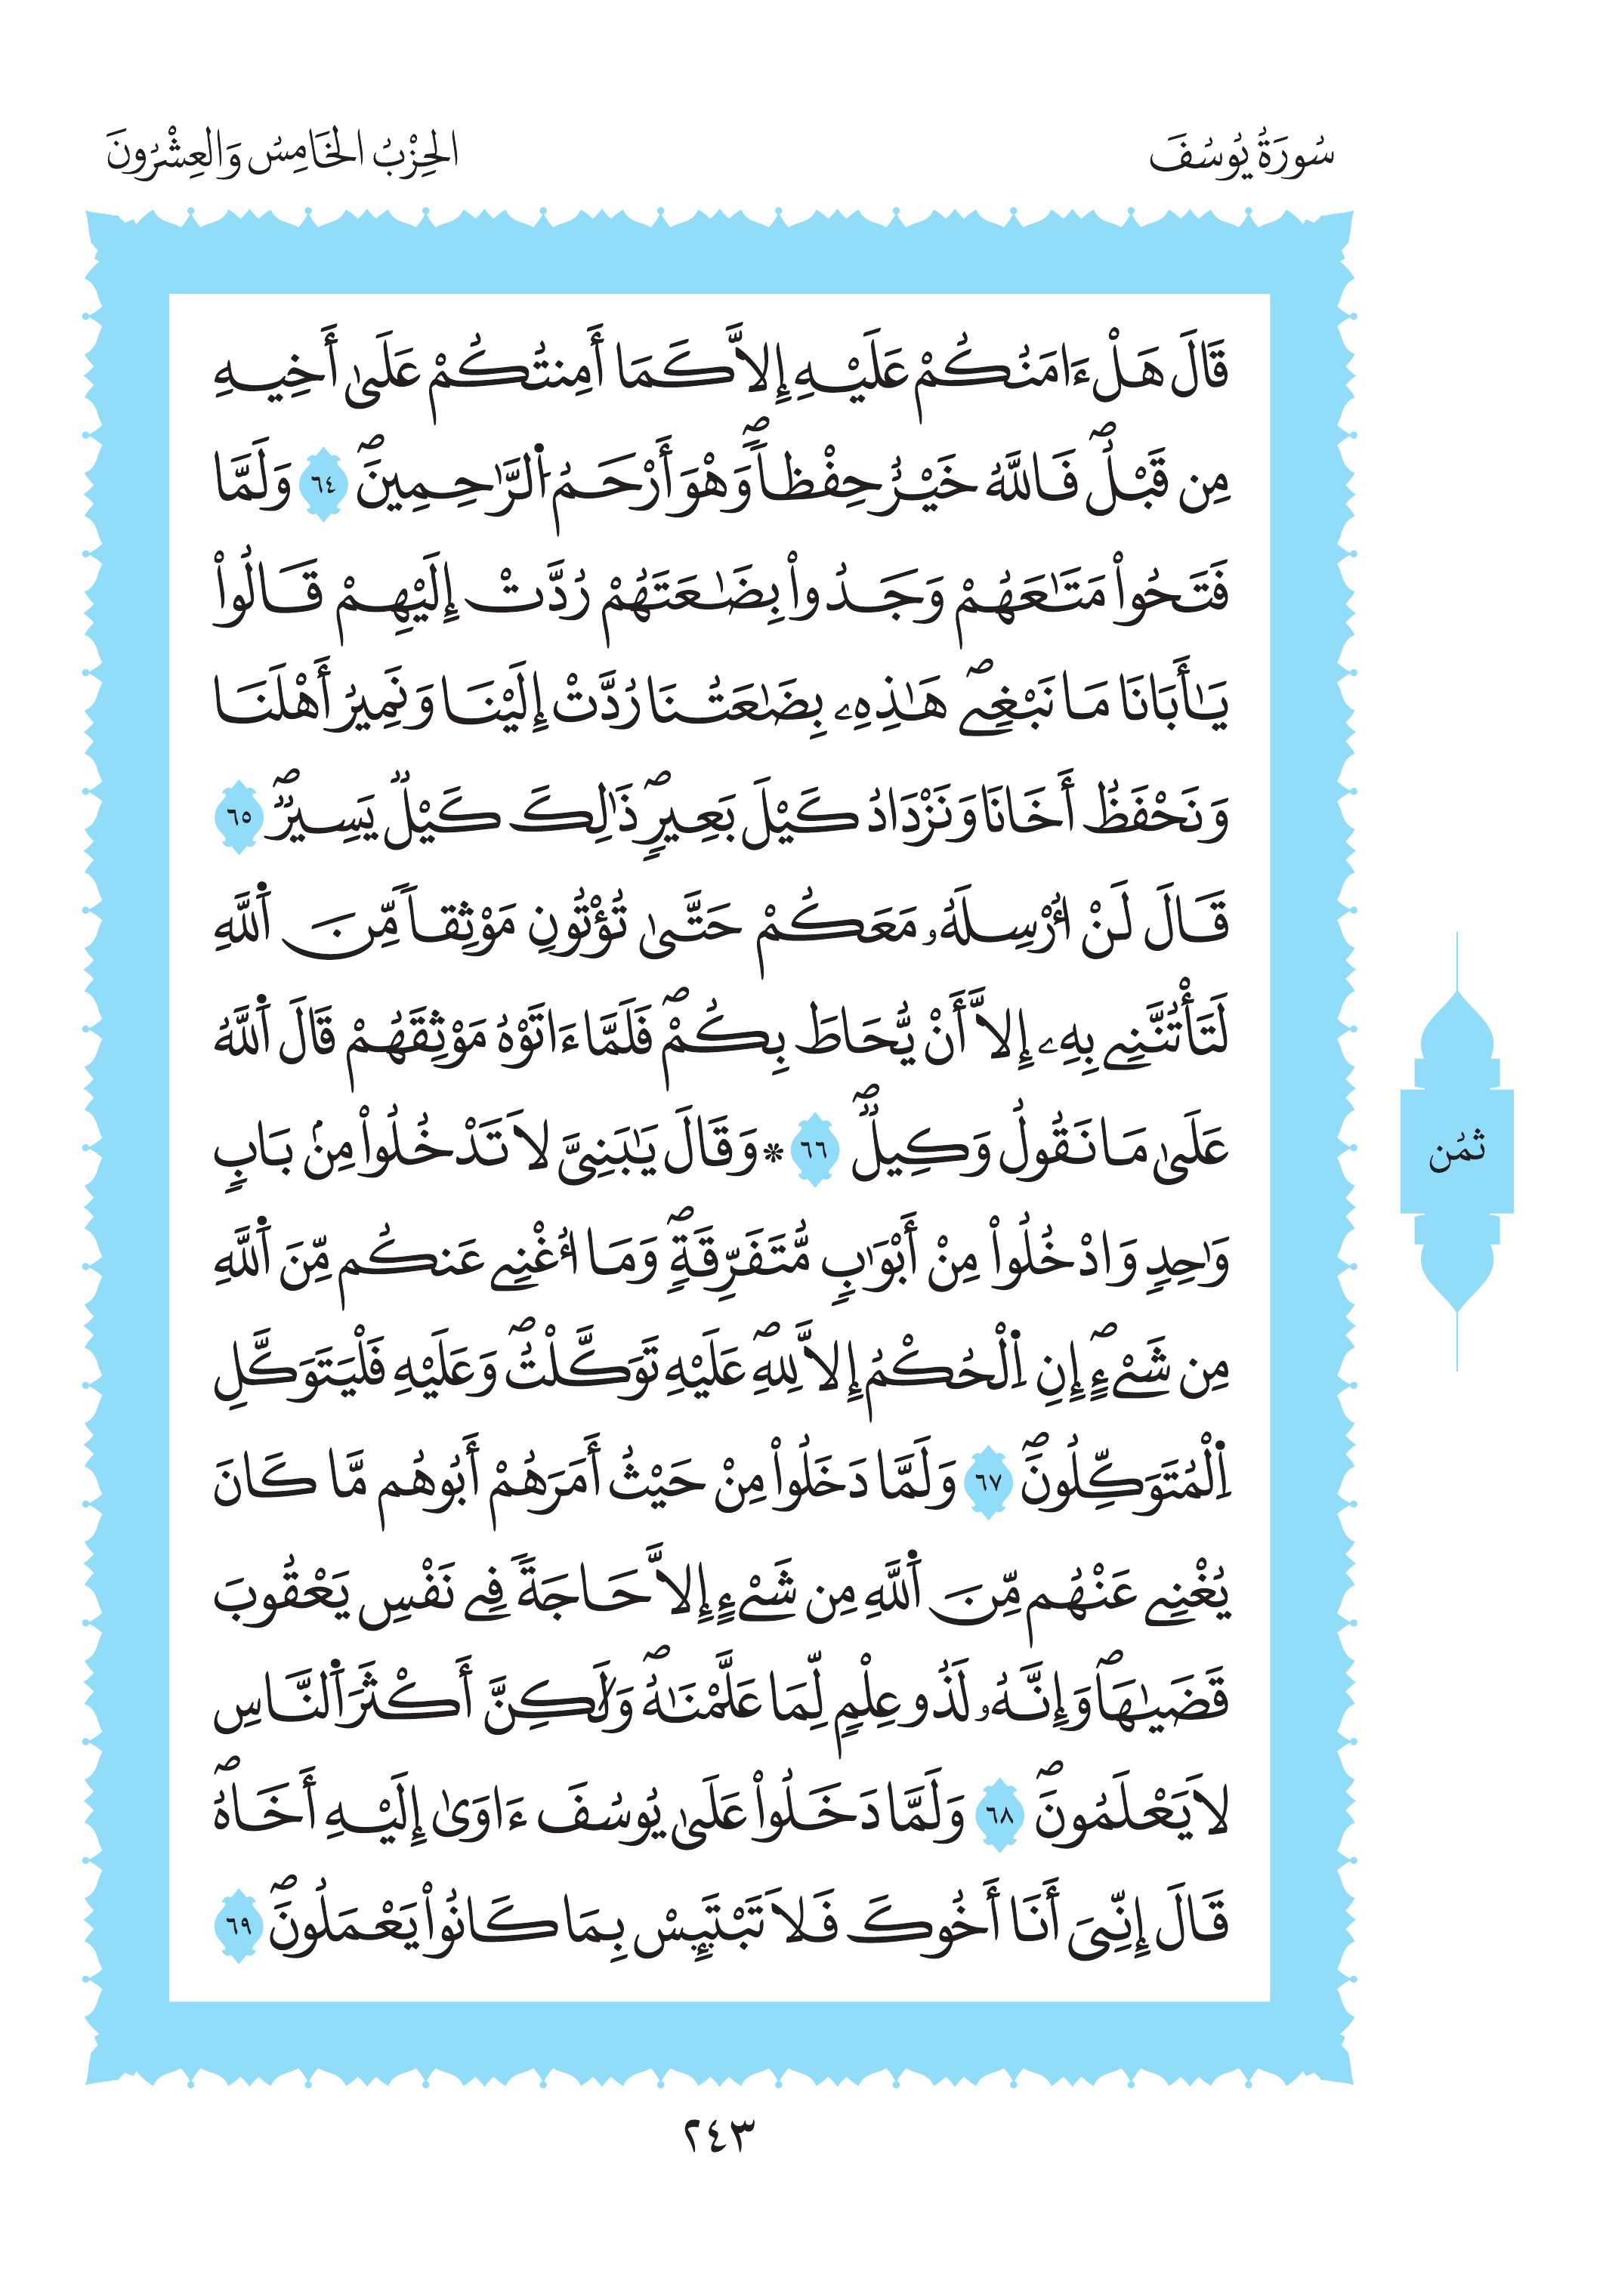 سُورَةُ يُوسُفَ
الحِزْبُ الخَامِسُ وَالعِشْرُونَ
قَالَ هَلْ ءَامَنُكُمْ عَلَيْهِ إِلاَّ كَمَا أَمِنتُكُمْ عَلَىٰ أَخِيهِ
مِن قَبْلُۖ فَاللَّهُ خَيْرٌ حِفْظاٗۖ وَهْوَ أَرْحَمُ اُ۬لرَّٰحِمِينَۖ ٦٤ وَلَمَّا
فَتَحُواْ مَتَٰعَهُمْ وَجَدُواْ بِضَٰعَتَهُمْ رُدَّتْ إِلَيْهِمْ قَالُواْ
يَٰأَبَانَا مَا نَبْغِےۖ هَٰذِهِۦ بِضَٰعَتُنَا رُدَّتْ إِلَيْنَا وَنَمِيرُ أَهْلَنَا
وَنَحْفَظُ أَخَانَا وَنَزْدَادُ كَيْلَ بَعِيرٖۖ ذَٰلِكَ كَيْلٞ يَسِيرٞۖ ٦٥
قَالَ لَنْ ا۟رْسِلَهُۥ مَعَكُمْ حَتَّىٰ تُؤْتُونِ مَوْثِقاٗ مِّنَ اَ۬للَّهِ
لَتَأْتُنَّنِے بِهِۦ إِلاَّ أَنْ يُّحَاطَ بِكُمْۖ فَلَمَّا ءَاتَوْهُ مَوْثِقَهُمْ قَالَ اَ۬للَّهُ
عَلَىٰ مَا نَقُولُ وَكِيلٞۖ ٦٦ ✻ وَقَالَ يَٰبَنِيَّ لاَ تَدْخُلُواْ مِنۢ بَابٖ
وَٰحِدٖ وَادْخُلُواْ مِنْ أَبْوَٰبٖ مُّتَفَرِّقَةٖۖ وَمَا ا۟غْنِے عَنكُم مِّنَ اَ۬للَّهِ
مِن شَےْءٍۖ إِنِ اِ۬لْحُكْمُ إِلاَّ لِلهِۖ عَلَيْهِ تَوَكَّلْتُۖ وَعَلَيْهِ فَلْيَتَوَكَّلِ
اِ۬لْمُتَوَكِّلُونَۖ ٦٧ وَلَمَّا دَخَلُواْ مِنْ حَيْثُ أَمَرَهُمْ أَبُوهُم مَّا كَانَ
يُغْنِے عَنْهُم مِّنَ اَ۬للَّهِ مِن شَےْءٍ إِلاَّ حَاجَةٗ فِے نَفْسِ يَعْقُوبَ
قَضَيٰهَاۖ وَإِنَّهُۥ لَذُو عِلْمٖ لِّمَا عَلَّمْنَٰهُۖ وَلَٰكِنَّ أَكْثَرَ اَ۬لنَّاسِ
لاَ يَعْلَمُونَۖ ٦٨ وَلَمَّا دَخَلُواْ عَلَىٰ يُوسُفَ ءَاوَىٰ إِلَيْهِ أَخَاهُۖ
قَالَ إِنِّيَ أَنَا أَخُوكَ فَلاَ تَبْتَئِسْ بِمَا كَانُواْ يَعْمَلُونَۖ ٦٩
ثمُن
٢٤٣